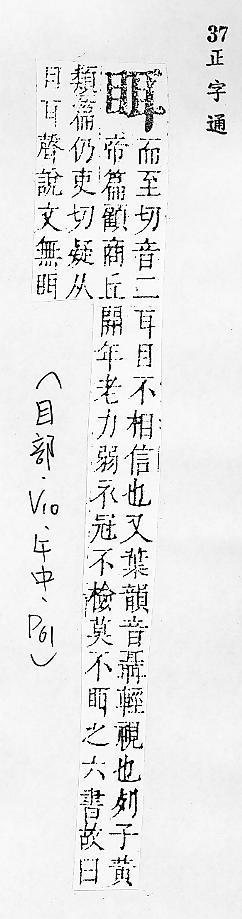 37
正字通
眲
而至切音二耳目不相信也又葉韻音聶輕視也列子黃
帝篇顧商丘開年老力弱衣冠不檢莫不眲之六書故曰
類篇仍吏切疑从
目耳聲說文無眲
(目部.V10.午中.P61)